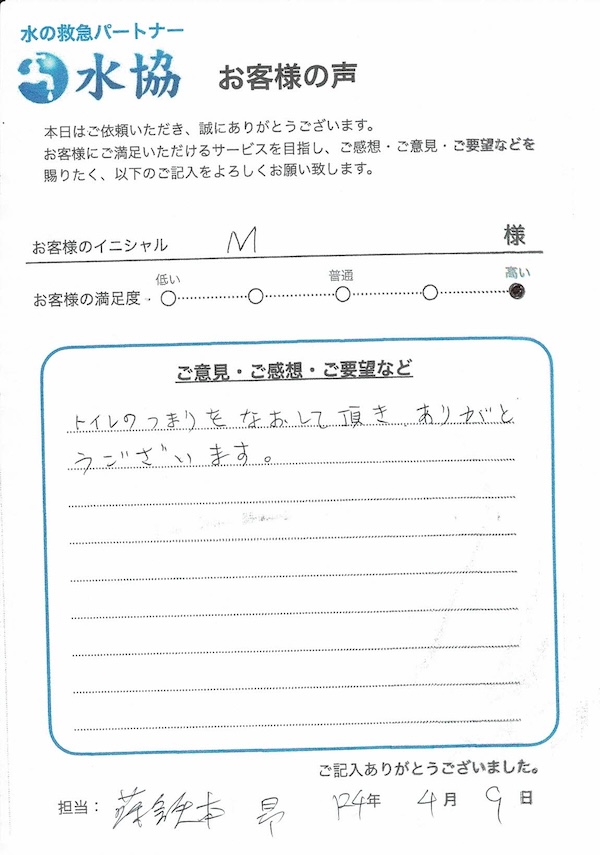 水の救急パートナー
水協 お客様の声
本日はご依頼いただき、誠にありがとうございます。
お客様にご満足いただけるサービスを目指し、ご感想・ご意見・ご要望などを
賜りたく、以下のご記入をよろしくお願い致します。
お客様のイニシャル M 様
低い 普通 高い
お客様の満足度
ご意見・ご感想・ご要望など
トイレのつまりをなおして頂き、ありがと
うございます。
ご記入ありがとうございました。
担当： 昂 R4年 4月 9日